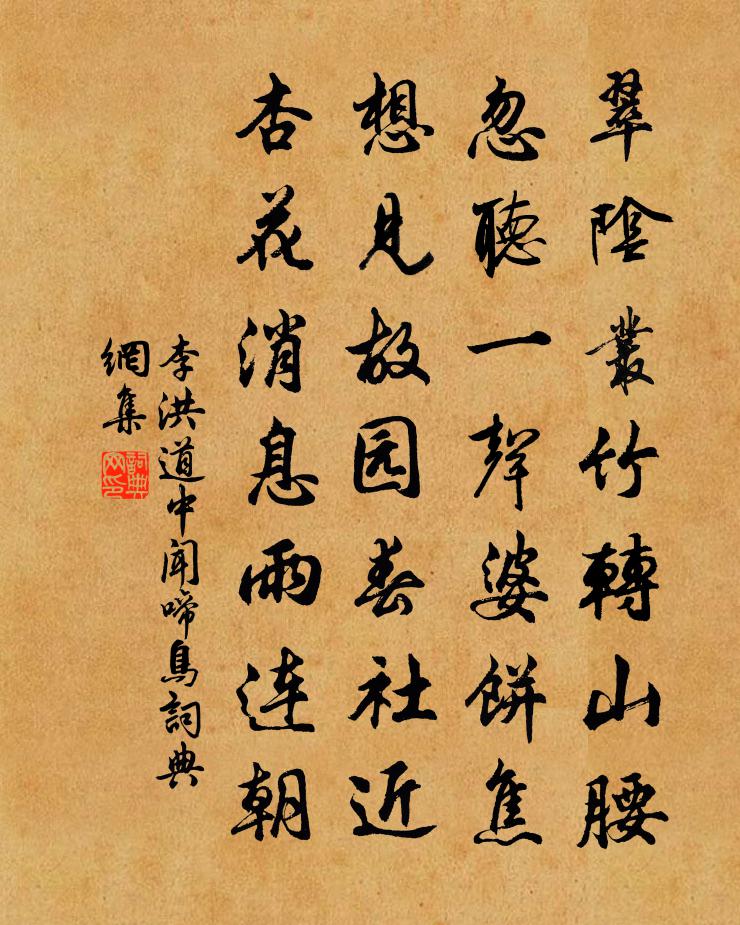 翠陰叢竹轉山腰
忽聽一聲婆餅焦
想見故园春社近
杏花消息雨连朝
李洪道中闻啼鳥詞典
網集
詞典网印